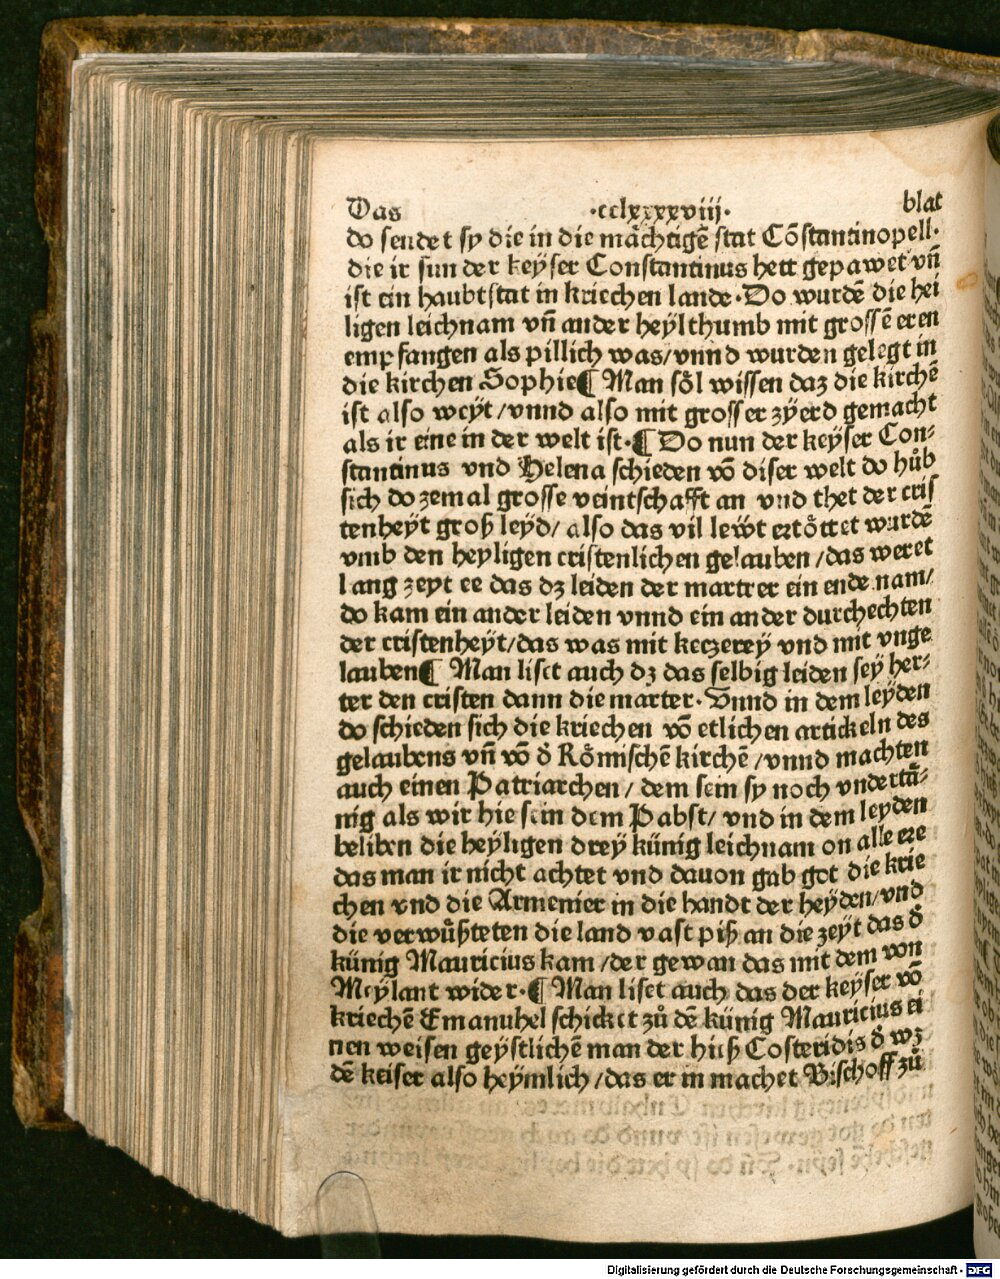 Das ·cclxxxxviij· blat
do sendet sy die in die mächtigẽ stat Cõstantinopell·
die ir sun der keyser Constantinus hett gepawet vñ
ist ein haubtstat in kriechen lande·Do wurdẽ die hei
ligen leichnam vñ ander heÿlthumb mit grossẽ eren
empfangen als pillich was/vnnd wurden gelegt in
die kirchen Sophie¶ Man söl wissen daz die kirchẽ
ist also weÿt/vnnd also mit grosser zÿerd gemacht
als ir eine in der welt ist·¶ Do nun der keÿser Con⸗
stantinus vnd Helena schieden võ diser welt do hůb
sich do zemal grosse veintschafft an vnd thet der cris
tenheÿt groß leÿd/ also das vil lewt ertöttet wurdẽ
vmb den heyligen cristenlichen gelauben/das weret
lang zeyt ee das dz leiden der martrer ein ende nam/
do kam ein ander leiden vnnd ein ander durchechten
der cristenheÿt/das was mit keczereÿ vnd mit vnge
lauben¶ Man liset auch dz das selbig leiden sey her⸗
ter den cristen dann die marter·Vnnd in dem leyden
do schieden sich die kriechen võ etlichen artickeln des
gelaubens vñ võ d̕ Römischẽ kirchẽ/vnnd machten
auch einen Patriarchen/ dem sein sy noch vndertã⸗
nig als wir hie sein dem Pabst/ vnd in dem leyden
beliben die heÿligen dreÿ künig leichnam on alle ere
das man ir nicht achtet vnd dauon gab got die krie
chen vnd die Armenier in die handt der heÿden/vnd
die verwůßteten die land vast piß an die zeÿt das d̕
künig Mauricius kam/der gewan das mit dem von
Meÿlant wider·¶ Man liset auch das der keyser võ
kriechẽ Emanuhel schicket zů dẽ künig Mauricius ei
nen weisen geÿstlichẽ man der hieß Costeridis d̕ wz
dẽ keiser also heÿmlich/das er in machet Bischoff zů
Digitalisierung gefördert durch die Deutsche Forschungsgemeinschaft - DFG